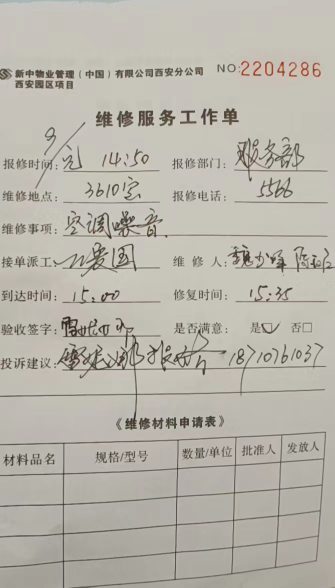 新中物业管理（中国）有限公司西安分公司 NO:2204286
西安园区项目
维修服务工作单
报修时间: 14:50 报修部门: 服务部
维修地点: 3610室 报修电话: 5566
维修事项: 空调噪音
接单派工: 维修人:
到达时间: 15:00 修复时间: 15:35
验收签字: 是否满意: 是☑ 否□
投诉建议: 18710761037
《维修材料申请表》
材料品名 规格/型号 数量/单位 批准人 发放人